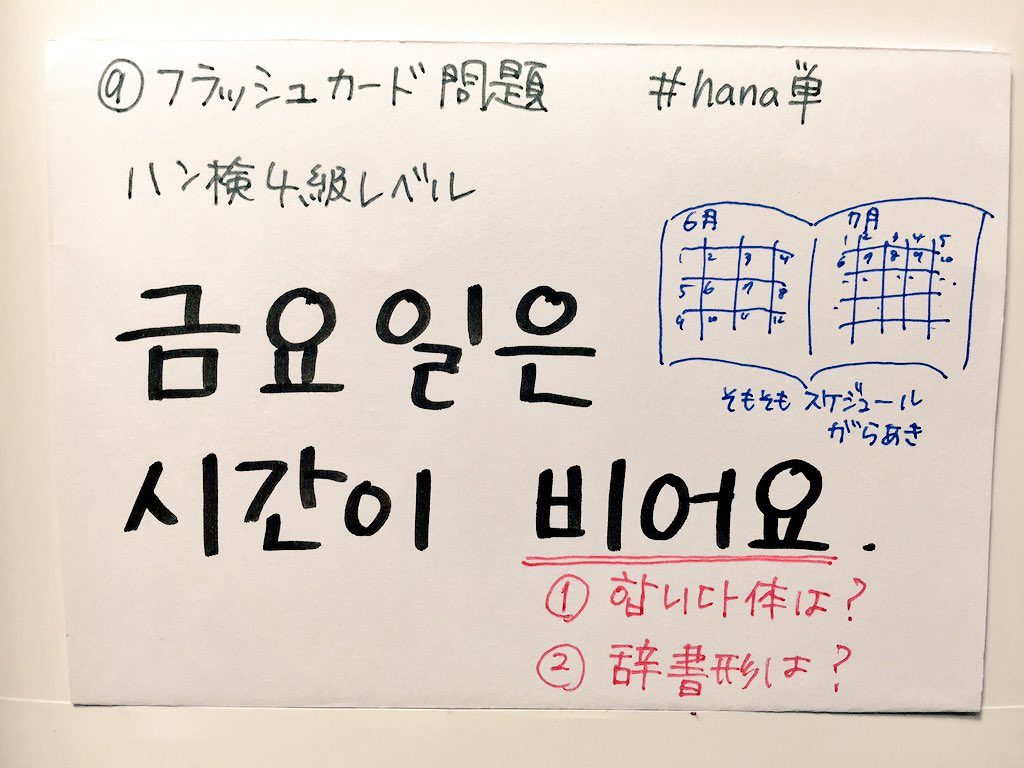 ⑨フラッシュカード問題 #hana単
ハン検4級レベル
6月 7月
1 2 3 4 5
1 2 3 4 6 7 8 9 10
5 6 7 8
9 10 11 12
そもそもスケジュール
がらあき
금요일은
시간이 비어요.
① 합니다体は?
② 辞書形は?